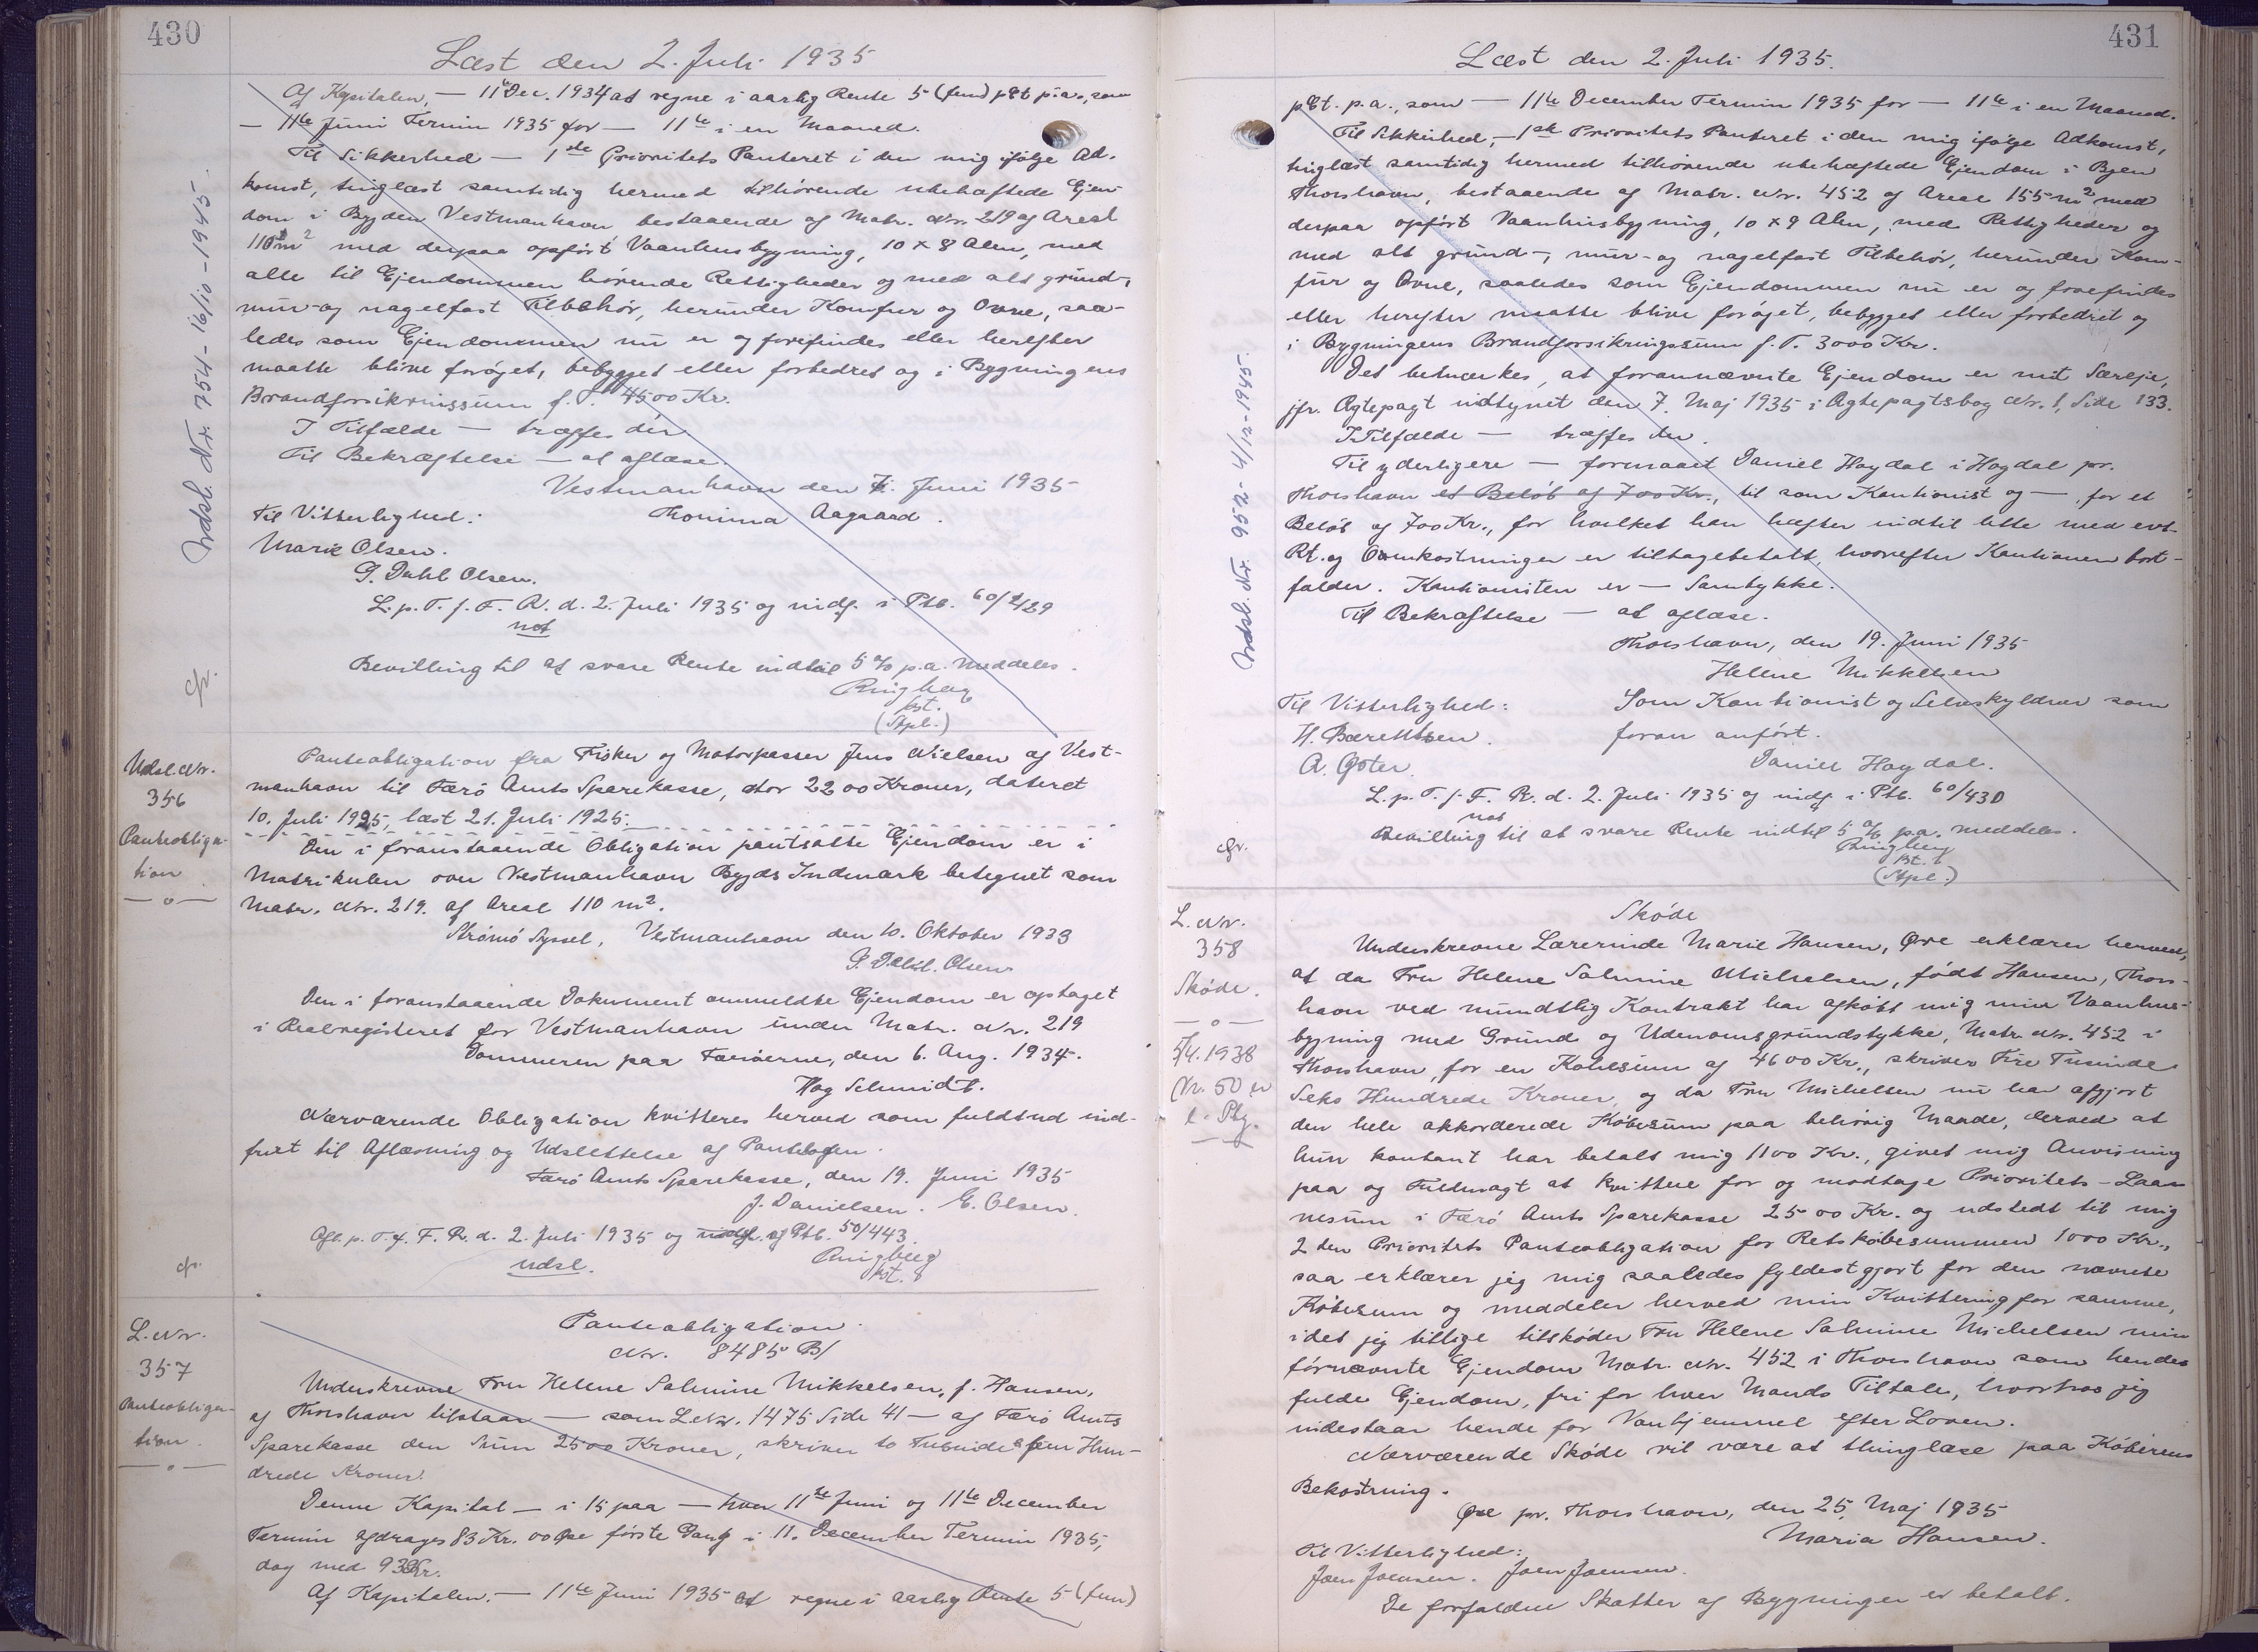 430
Læst den 2. Juli 1935
Af Kapitalen, — 11te Dec. 1934 at regne i aarlig Rente 5 (fem) pCt p.a., som
— 11te Juni Termin 1935 for — 11te i en Maaned.
Til Sikkerhed — 1ste Prioritets Panteret i den mig ifølge Ad-
komst, tinglæst samtidig hermed tilhørende ubehæftede Ejen-
dom i Bygden Vestmanhavn bestaaende af Matr. Nr. 219 af Areal
110 m² med derpaa opført Vaanhusbygning, 10 x 8 Alen, med
alle til Ejendommen hørende Rettigheder og med alt grund-,
mur- og nagelfast Tilbehør, herunder Komfur og Ovne, saa-
ledes som Ejendommen nu er og forefindes eller herefter
maatte blive forøget, bebygget eller forbedret og i Bygningens
Brandforsikringssum f.T. 4500 Kr.
I Tilfælde — træffes dér
Til Bekræftelse — at aflæse.
Vestmanhavn den 7. Juni 1935
Til Vitterlighed: Thomina Aagaard.
Marie Olsen.
P. Dahl Olsen.
L. p. T. f. F. R. d. 2. Juli 1935 og indf. i Ptb. 60/429
not
Bevilling til at svare Rente indtil 5 % p.a. meddeles.
Ringberg
kst.
(Stpl.)
Udsl. Nr. 754 - 16/10 - 1945.
cfr.
Udsl. Nr.
356
Panteobliga-
tion
—o—
Panteobligation fra Fisker og Motorpasser Jens Nielsen af Vest-
manhavn til Færø Amts Sparekasse, stor 2200 Kroner, dateret
10. Juli 1925, læst 21. Juli 1925.
Den i foranstaaende Obligation pantsatte Ejendom er i
Matrikulen over Vestmanhavn Bygds Indmark betegnet som
Matr. Nr. 219. af Areal 110 m².
Strømø Syssel, Vestmanhavn den 10. Oktober 1933
P. Dahl. Olsen
Den i foranstaaende Dokument ommeldte Ejendom er optaget
i Realregisteret for Vestmanhavn under Matr. Nr. 219
Dommeren paa Færøerne, den 6. Aug. 1934.
Hag Schmidt.
Nærværende Obligation kvitteres herved som fuldtud ind-
friet til Aflæsning og Udslettelse af Pantebogen.
Færø Amts Sparekasse, den 19. Juni 1935
J. Danielsen. E. Olsen.
Afl. p. T. f. F. R. d. 2. Juli 1935 og indf. af Ptb. 50/443.
udsl.
Ringberg
kst.
cfr.
L. Nr.
357
Panteobliga-
tion.
—o—
Panteobligation.
Nr. 8485 B/
Underskrevne Fru Helene Salmine Mikkelsen, f. Hansen,
af Thorshavn tilstaar — som L.Nr. 1475 Side 41 — af Færø Amts
Sparekasse den Sum 2500 Kroner, skriver to Tusinde fem Hun-
drede Kroner.
Denne Kapital — i 15 paa — hver 11te Juni og 11te December
Termin afdrages 83 Kr. 00 Øre første Gang i 11. December Termin 1935,
dog med 93 Kr.
Af Kapitalen. — 11te Juni 1935 at regne i aarlig Rente 5 (fem)
431
Læst den 2. Juli 1935.
pCt. p.a., som — 11te December Termin 1935 for — 11te i en Maaned.
Til Sikkerhed, — 1ste Prioritets Panteret i den mig ifølge Adkomst,
tinglæst samtidig hermed tilhørende ubehæftede Ejendom i Byen
Thorshavn, bestaaende af Matr. Nr. 452 af Areal 155 m² med
derpaa opført Vaanhusbygning, 10 x 9 Alen, med Rettigheder og
med alt grund-, mur- og nagelfast Tilbehør, herunder Kom-
fur og Ovne, saaledes som Ejendommen nu er og forefindes
eller herefter maatte blive forøget, bebygget eller forbedret og
i Bygningens Brandforsikringssum f.T. 3000 Kr.
Det bemærkes, at forannævnte Ejendom er mit Særeje,
jfr. Ægtepagt indtynet den 7. Maj 1935 i Ægtepagtsbog Nr. 1, Side 133.
I Tilfælde — træffes der.
Til yderligere — formaaet Daniel Høgdal i Høgdal pr.
Thorshavn et Beløb af 700 Kr., til som Kautionist og —, for et
Beløb af 700 Kr., for hvilket han hæfter indtil dette med evt.
Rt. og Omkostninger er tilbagebetalt, hvorefter Kautionen bort-
falder. Kautionisten er — Samtykke.
Til Bekræftelse — at aflæse.
Thorshavn, den 19. Juni 1935
Helene Mikkelsen
Til Vitterlighed: Som Kautionist og Selvskyldner som
H. Bærentsen. foran anført.
A. Øster. Daniel Høgdal.
L. p. T. f. F. R. d. 2. Juli 1935 og indf. i Ptb. 60/430
not
Bevilling til at svare Rente indtil 5 % p.a. meddeles.
Ringberg
kst.
(Stpl.)
Udsl. Nr. 952 - 4/12 - 1945.
cfr.
L. Nr.
358
Skøde.
—o—
5/4. 1938
Nr. 50 er
e. Ptg.
Skøde
Underskrevne Lærerinde Marie Hansen, Øre erklærer herved,
at da Fru Helene Salmine Michelsen, født Hansen, Thors-
havn ved mundtlig Kontrakt har afkøbt mig min Vaanhus-
bygning med Grund og Udenomsgrundstykke, Matr. Nr. 452 i
Thorshavn, for en Købesum af 4600 Kr., skriver Fire Tusinde
Seks Hundrede Kroner, og da Fru Michelsen nu har afgjort
den hele akkorderede Købesum paa behørig Maade, derved at
hun kontant har betalt mig 1100 Kr., givet mig Anvisning
paa og Fuldmagt at kvittere for og modtage Prioritets-Laa-
nesum i Færø Amts Sparekasse 2500 Kr. og udstedt til mig
2den Prioritets Panteobligation for Restkøbesummen 1000 Kr.,
saa erklærer jeg mig saaledes fyldestgjort for den nævnte
Købesum og meddeler herved min Kvittering for samme,
idet jeg tillige tilskøder Fru Helene Salmine Michelsen min
førnævnte Ejendom Matr. Nr. 452 i Thorshavn som hendes
fulde Ejendom, fri for hver Mands Tiltale, hvorhos jeg
indestaar hende for Vanhjemmel efter Loven.
Nærværende Skøde vil være at thinglæse paa Køberens
Bekostning.
Øre pr. Thorshavn, den 25. Maj 1935
Maria Hansen.
Til Vitterlighed:
Joen Joensen. Joen Joensen.
De forfaldne Skatter af Bygninger er betalt.